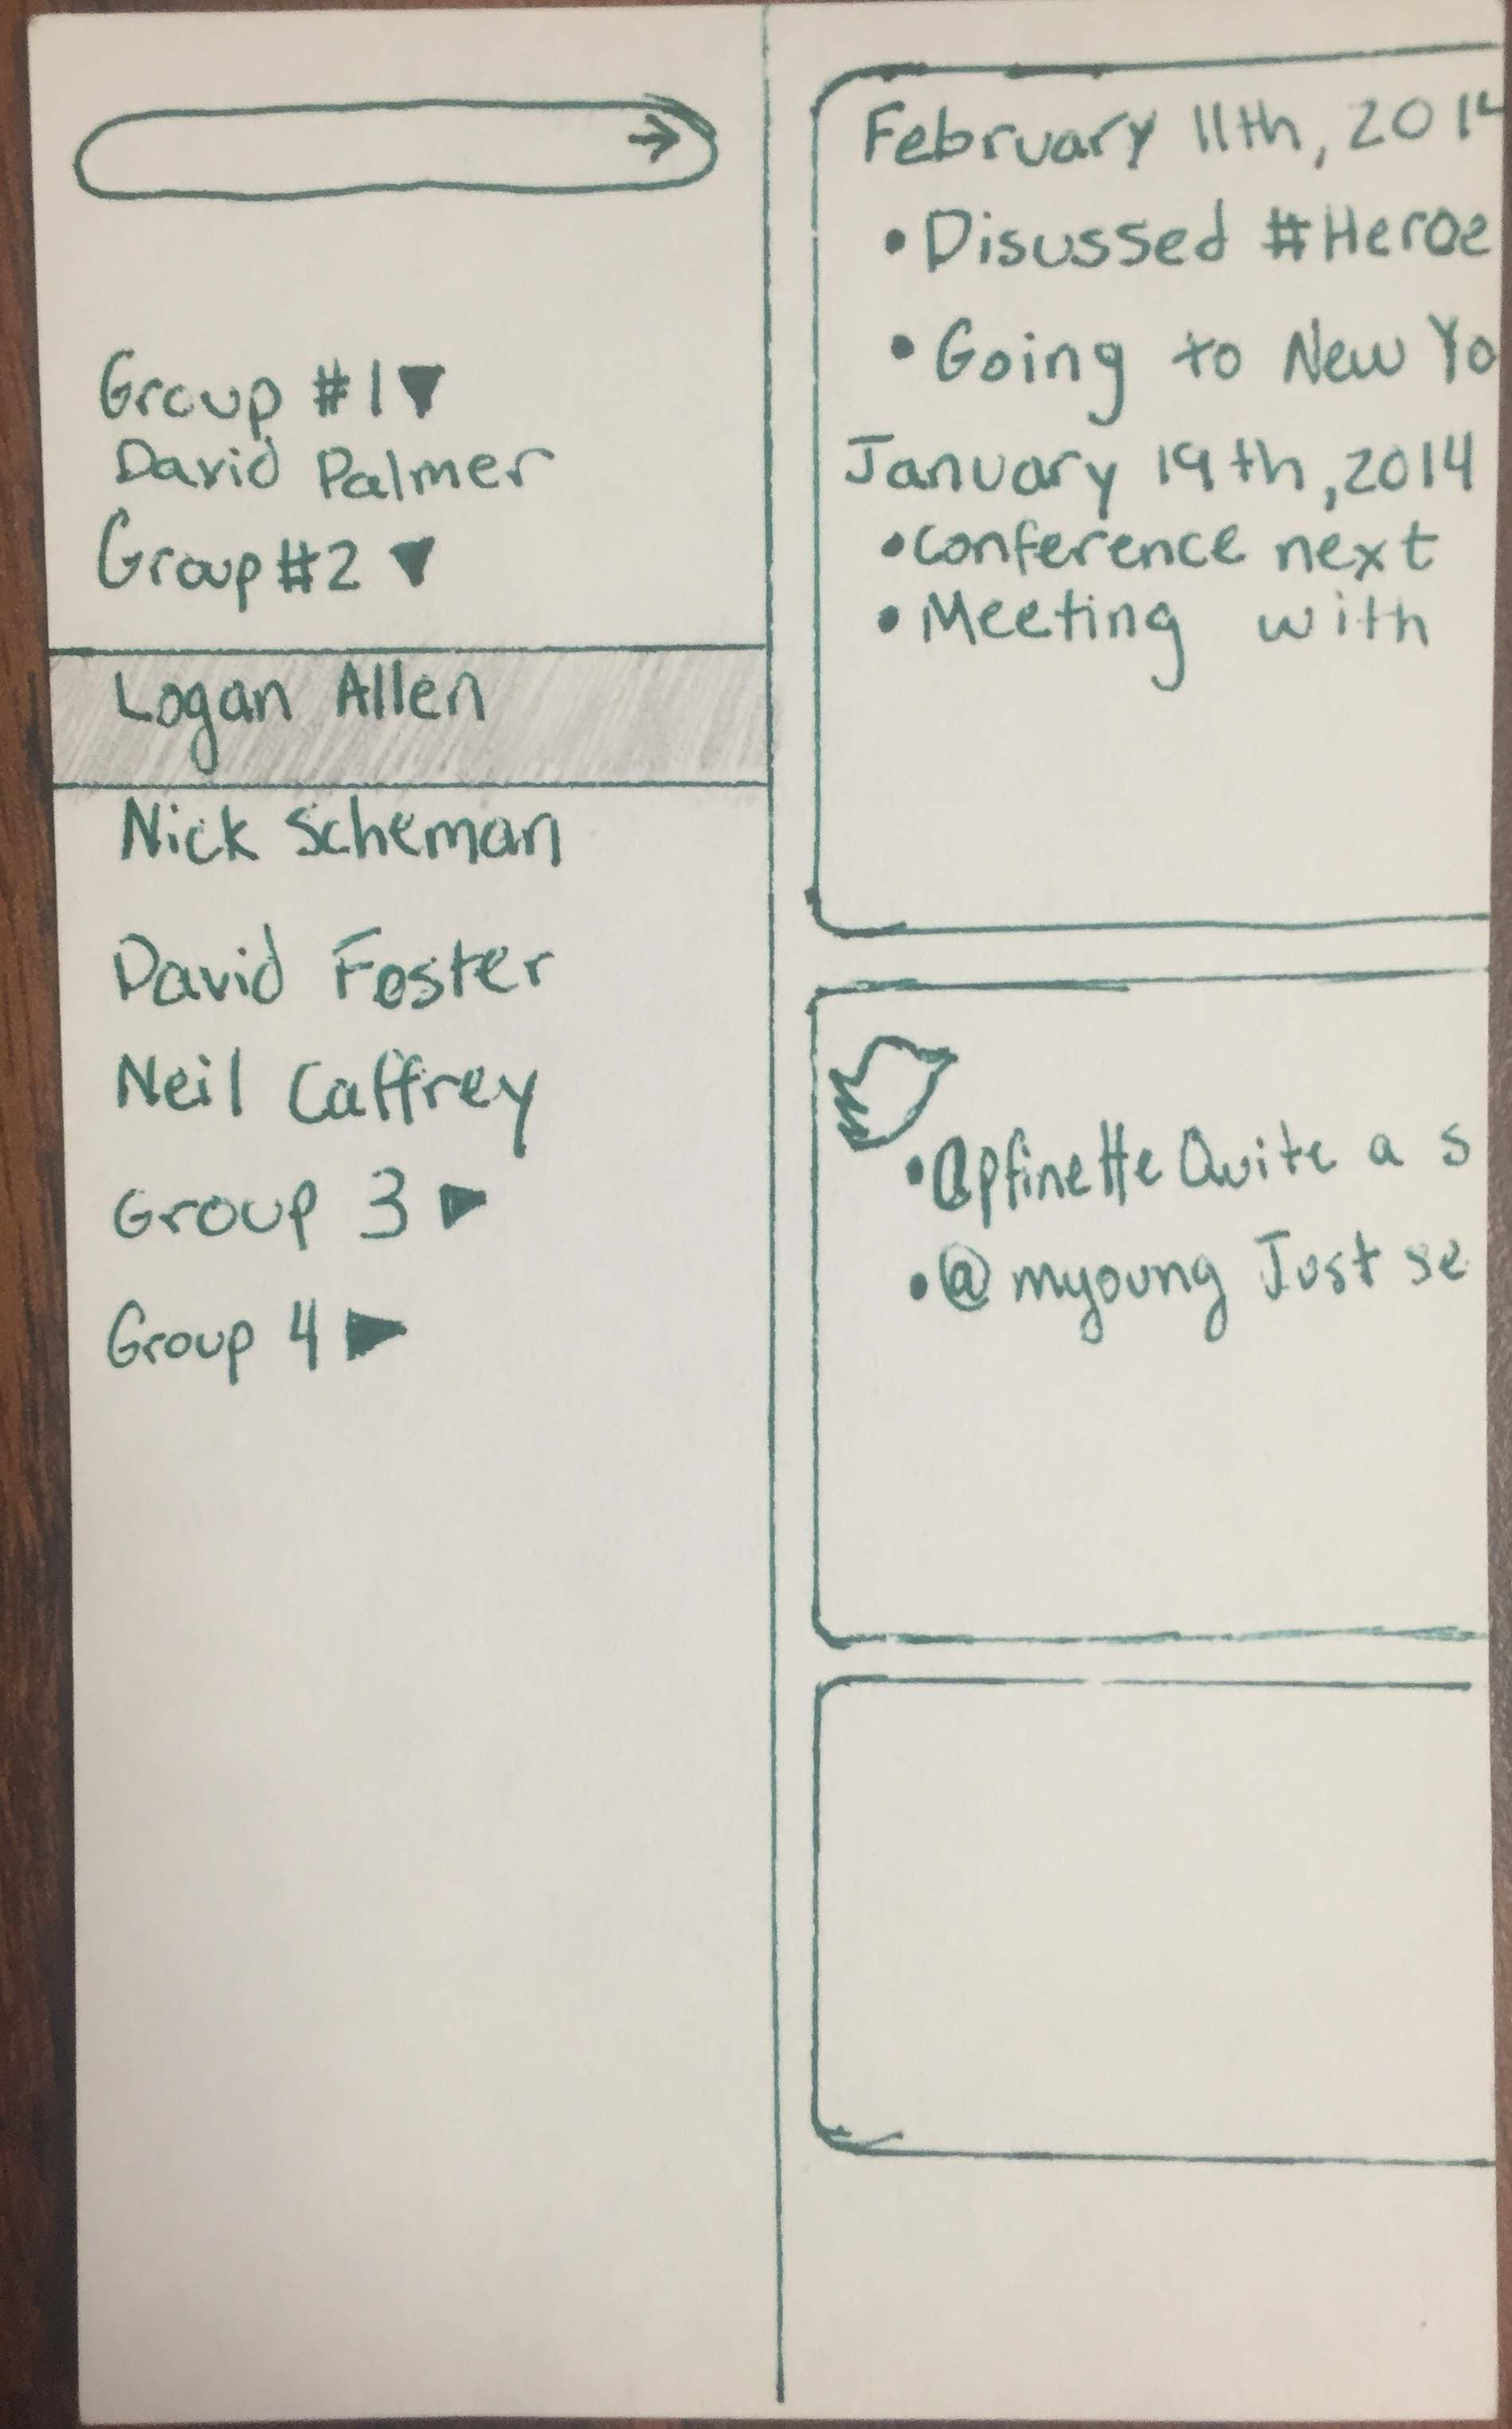 Group #1
David Palmer
Group #2
Logan Allen
Nick Scheman
David Foster
Neil Caffrey
Group 3
Group 4
February 11th, 2014
• Disussed #Heroe
• Going to New Yo
January 19th, 2014
• Conference next
• Meeting with
• @pfinette Quite a s
• @myoung Just se